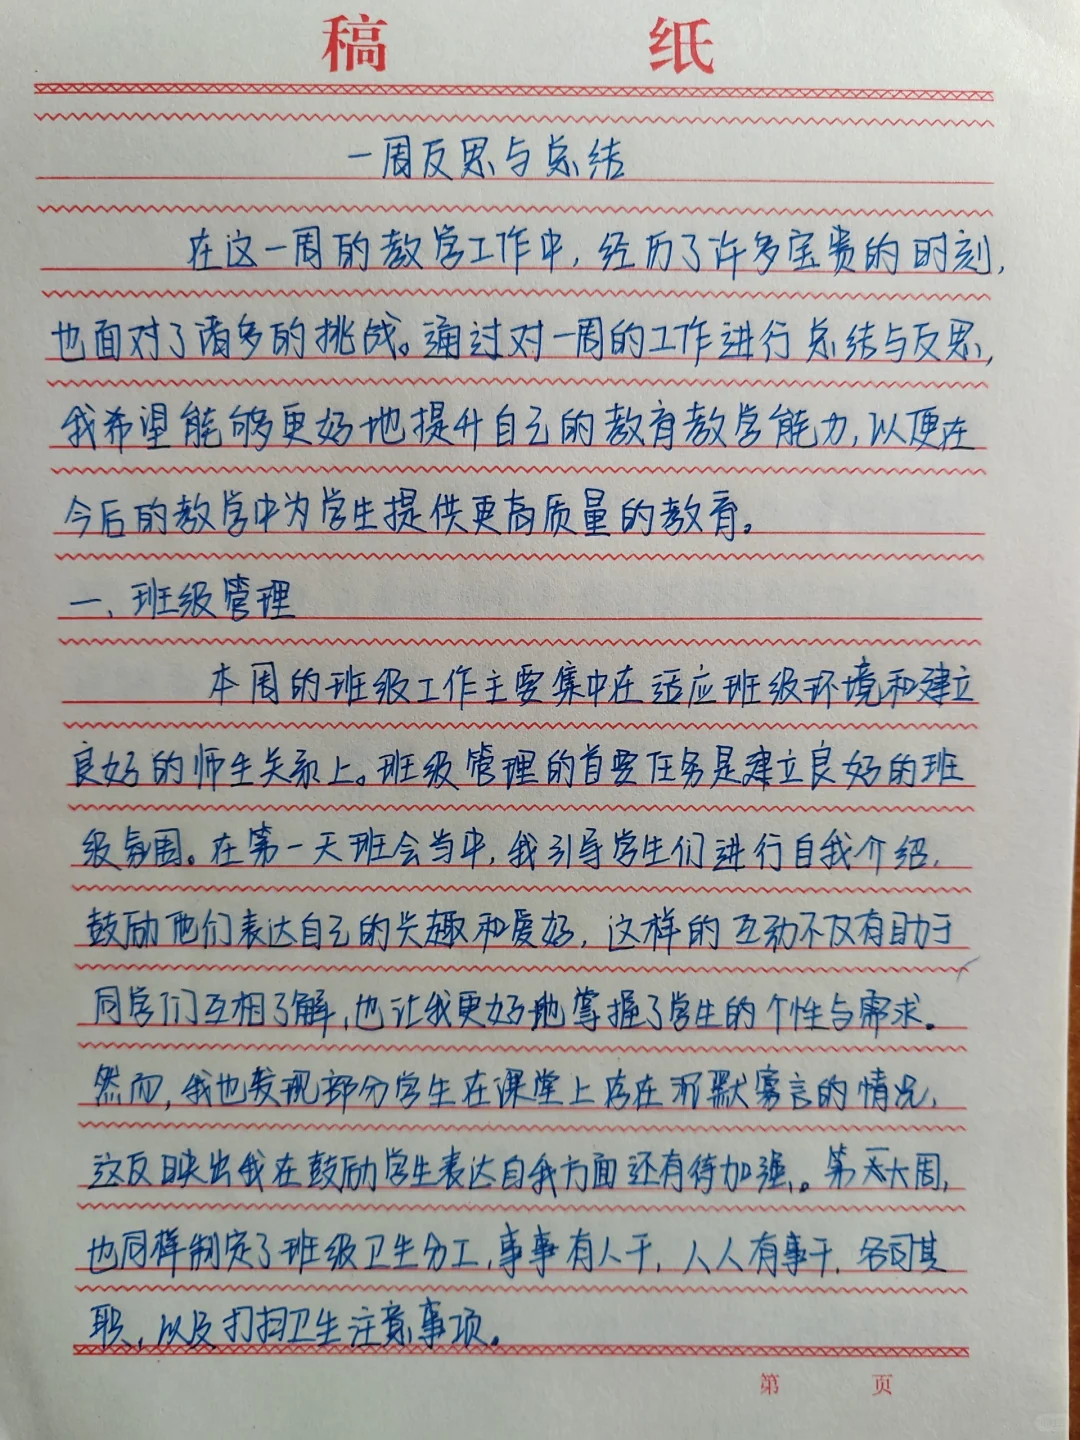 稿 纸
一周反思与总结
在这一周的教学工作中，经历了许多宝贵的时刻，
也面对了诸多的挑战。通过对一周的工作进行总结与反思，
我希望能够更好地提升自己的教育教学能力，以便在
今后的教学中为学生提供更高质量的教育。
一、班级管理
本周的班级工作主要集中在适应班级环境和建立
良好的师生关系上。班级管理的首要任务是建立良好的班
级氛围。在第一天班会当中，我引导学生们进行自我介绍，
鼓励他们表达自己的兴趣和爱好，这样的互动不仅有助于
同学们互相了解，也让我更好地掌握了学生的个性与需求。
然而，我也发现部分学生在课堂上存在沉默寡言的情况，
这反映出我在鼓励学生表达自我方面还有待加强。第大周，
也同样制定了班级卫生分工，事事有人干，人人有事干，各司其
职，以及打扫卫生注意事项。
第 页